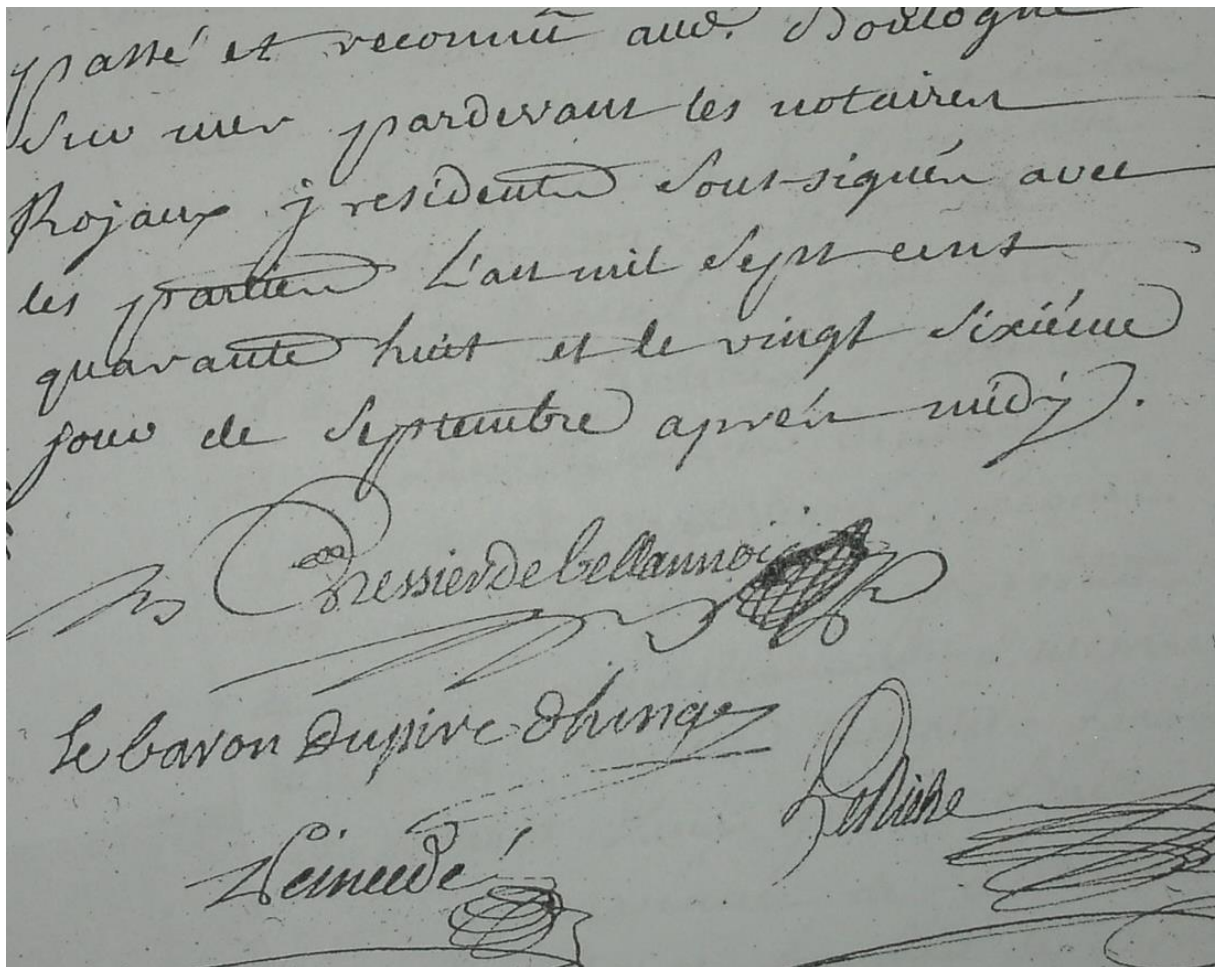 passé et reconnu aud. Boulogne
sur mer pardevant les notaires
Rojaux j residents sous-signés avec
les parties L'an mil sept cent
quarante huit et le vingt sixiéme
jour de Septembre aprés midÿ.
Dressier de bellannoi
le baron Dupire Dhinge